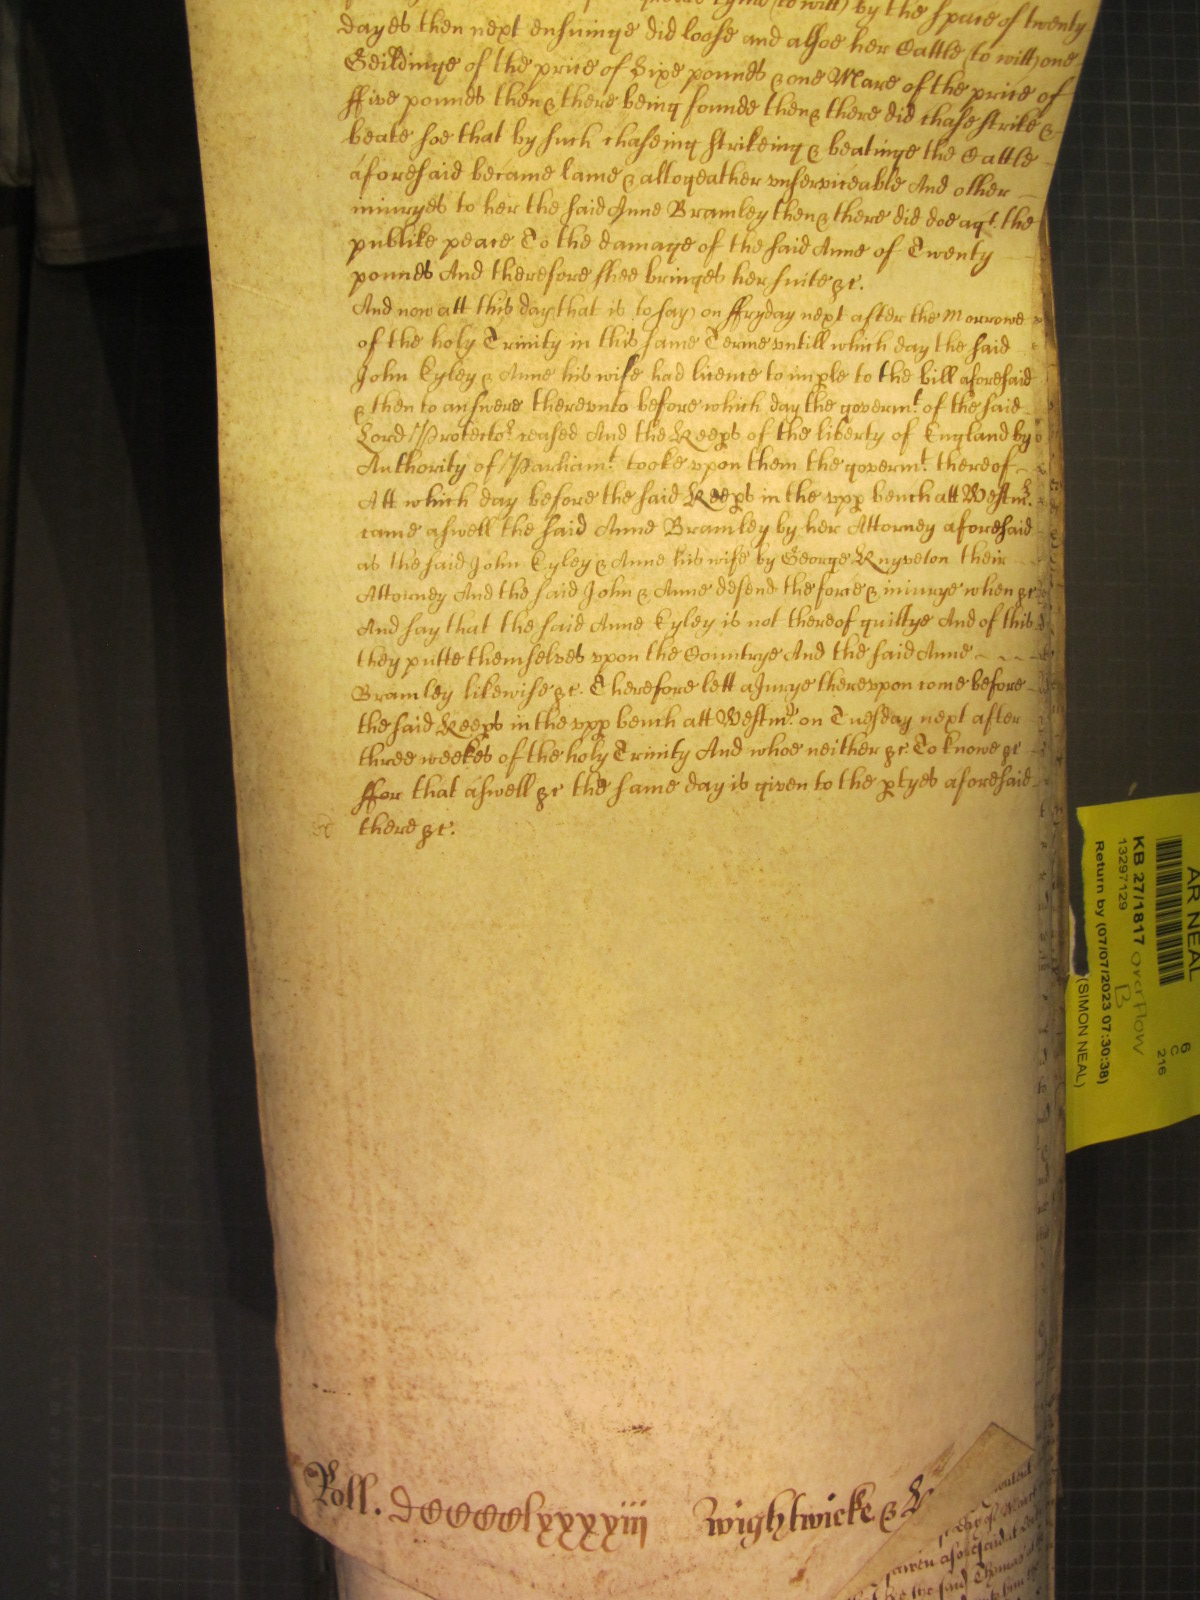 by the space of twenty
dayes then next ensuinge did loose and alsoe her Cattle (to witt) one
Geildinge of the price of Sixe pounds & one Mare of the price of
ffive pounds then & there being founde then & there did chase strike &
beate soe that by such chaseing strikeing & beatinge the Cattle
aforesaid became lame & altogeather unserviceable And other
iniuryes to her the said Anne Bramley then & there did doe agt. the
publike peace To the damage of the said Anne of Twenty
pounds And therefore shee bringes her suite &c.
And now att this day that is to say on ffryday next after the Morrowe
of the holy Trinity in this same Terme untill which day the said
John Eyley & Anne his wife had licence to imple to the bill aforesaid
& then to answere thereunto before which day the governmt. of the said
Lord Protector. ceased And the Keeps of the liberty of England by
Authority of Parliamt. tooke upon them the govermt. thereof
Att which day before the said Keeps in the upp bench att Westmr.
came aswell the said Anne Bramley by her Attorney aforesaid
as the said John Eyley & Anne his wife by George Knyveton their
Attorney And the said John & Anne defend the force & iniurye when &c
And say that the said Anne Eyley is not thereof guiltye And of this
they putte themselves upon the Countrye And the said Anne
Bramley likewise &c. Therefore lett a Jurye thereupon come before
the said Keeps in the upp bench att Westmr. on Tuesday next after
three weekes of the holy Trinity And whoe neither &c To knowe &c
ffor that aswell &c the same day is given to the ptyes aforesaid
there &c.
Roll. DCCCClxxxxiii Wightwicke &
AR NEAL
6
C
216
KB 27/1817 overflow
B
13297129
Return by (07/07/2023 07:30:38)
(SIMON NEAL)